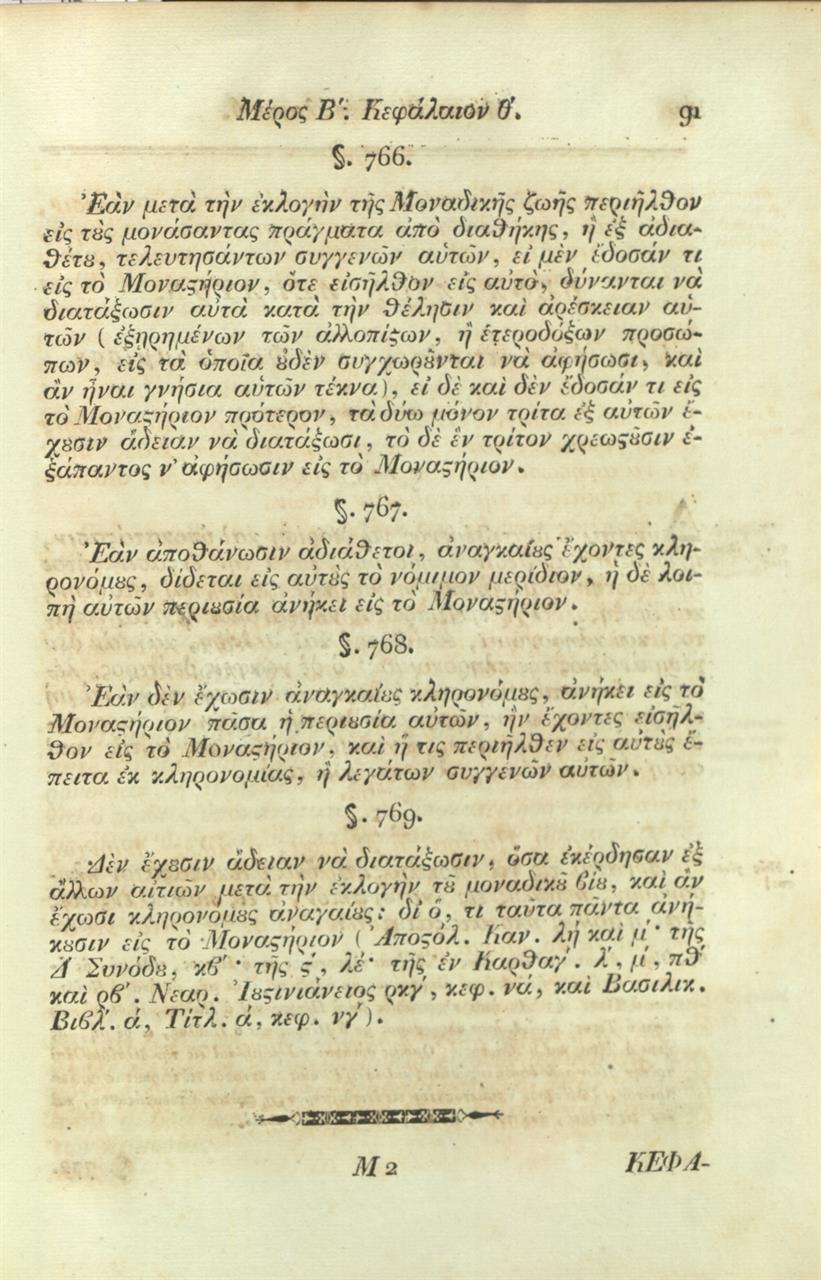 Μέρος Β΄. Κεφάλαιον θ΄.      91
§. 766.
Ἐὰν μετὰ τὴν ἐκλογὴν τῆς Μοναδικῆς ζωῆς περιῆλθον
εἰς τȣ̀ς μονάσαντας πράγματα ἀπὸ διαθήκης, ἢ ἐξ ἀδια-
θέτȣ, τελευτησάντων συγγενῶν αὑτῶν, εἰ μὲν ἔδοσάν τι
εἰς τὸ Μοναϛήριον, ὅτε εἰσῆλθον εἰς αὐτὸ, δύνανται νὰ
διατάξωσιν αὐτὰ κατὰ τὴν θέλησιν καὶ ἀρέσκειαν αὑ-
τῶν ( ἐξῃρημένων τῶν ἀλλοπίϛων, ἢ ἑτεροδόξων προσώ-
πων, εἰς τὰ ὁποῖα ȣ̓δὲν συγχωρȣ͂νται νὰ ἀφήσωσι, καὶ
ἂν ἦναι γνήσια αὑτῶν τέκνα), εἰ δὲ καὶ δὲν ἔδοσάν τι εἰς
τὸ Μοναϛήριον πρότερον, τὰ δύω μόνον τρίτα ἐξ αὐτῶν ἔ-
χȣσιν ἄδειαν νὰ διατάξωσι, τὸ δὲ ἓν τρίτον χρεωϛȣ͂σιν ἐ-
ξάπαντος ν' ἀφήσωσιν εἰς τὸ Μοναϛήριον.
§. 767.
Ἐὰν ἀποθάνωσιν ἀδιάθετοι, ἀναγκαίȣς ἔχοντες κλη-
ρονόμȣς, δίδεται εἰς αὐτȣ̀ς τὸ νόμιμον μερίδιον, ἡ δὲ λοι-
πὴ αὐτῶν περιȣσία ἀνήκει εἰς τὸ Μοναϛήριον.
§. 768.
Ἐὰν δὲν ἔχωσιν ἀναγκαίȣς κληρονόμȣς, ἀνήκει εἰς τὸ
Μοναϛήριον πᾶσα ἡ περιȣσία αὐτῶν, ἣν ἔχοντες εἰσῆλ-
θον εἰς τὸ Μοναϛήριον, καὶ ἥ τις περιῆλθεν εἰς αὐτȣ̀ς ἔ-
πειτα ἐκ κληρονομίας, ἢ λεγάτων συγγενῶν αὐτῶν.
§. 769.
Δὲν ἔχȣσιν ἄδειαν νὰ διατάξωσιν, ὅσα ἐκέρδησαν ἐξ
ἄλλων αἰτιῶν μετὰ τὴν ἐκλογὴν τȣ͂ μοναδικȣ͂ βίȣ, καὶ ἂν
ἔχωσι κληρονόμȣς ἀναγαίȣς: δι' ὅ, τι ταῦτα πάντα ἀνή-
κȣσιν εἰς τὸ Μοναϛήριον ( Ἀποϛόλ. Καν. λή καὶ μ΄ · τῆς
Δ΄ Συνόδȣ, κβ΄ · τῆς ϛ΄, λέ · τῆς ἐν Καρθαγ΄. λ΄, μ΄, πθ΄
καὶ ρβ΄. Νεαρ. Ἰȣϛινιάνειος ρκγ΄, κεφ. νά, καὶ Βασιλικ.
Βιβλ΄. ά, Τίτλ. ά, κεφ. νγ΄).
Μ 2      ΚΕΦΑ-